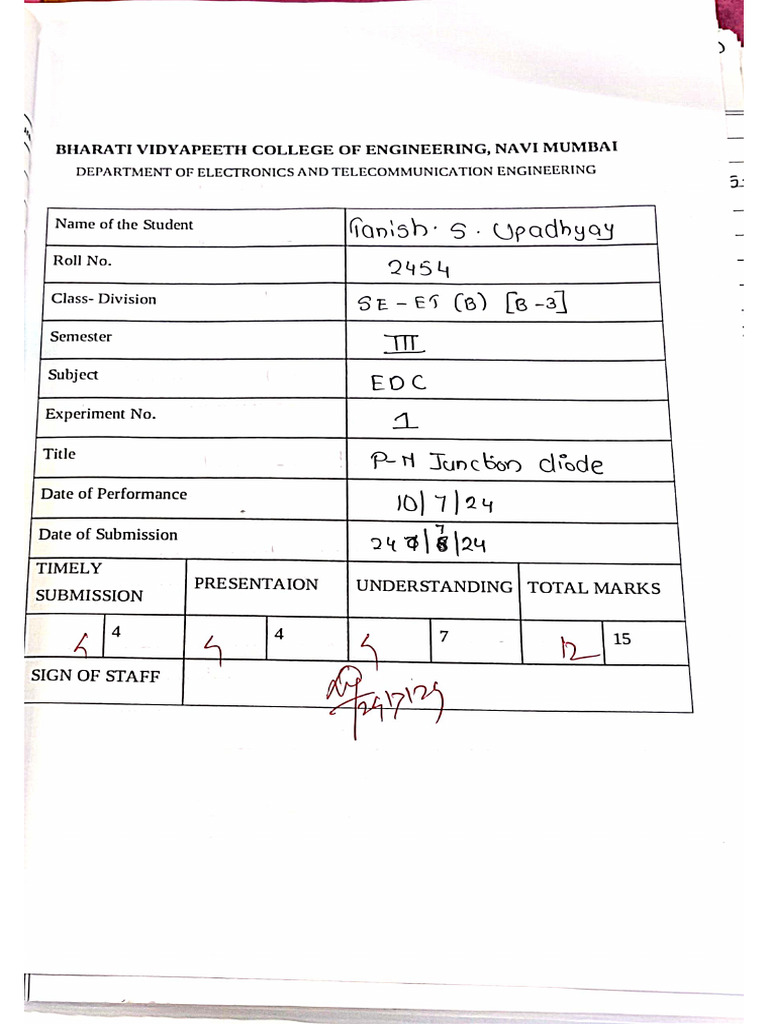 BHARATI VIDYAPEETH COLLEGE OF ENGINEERING, NAVI MUMBAI
DEPARTMENT OF ELECTRONICS AND TELECOMMUNICATION ENGINEERING
Name of the Student Tanish. S. Upadhyay
Roll No. 2454
Class- Division SE-ET (B) [B-3]
Semester III
Subject EDC
Experiment No. 1
Title P-N Junction diode
Date of Performance 10/7/24
Date of Submission 24/7/24
TIMELY SUBMISSION PRESENTAION UNDERSTANDING TOTAL MARKS
4 4 4 4 4 7 12 15
SIGN OF STAFF
24/7/24